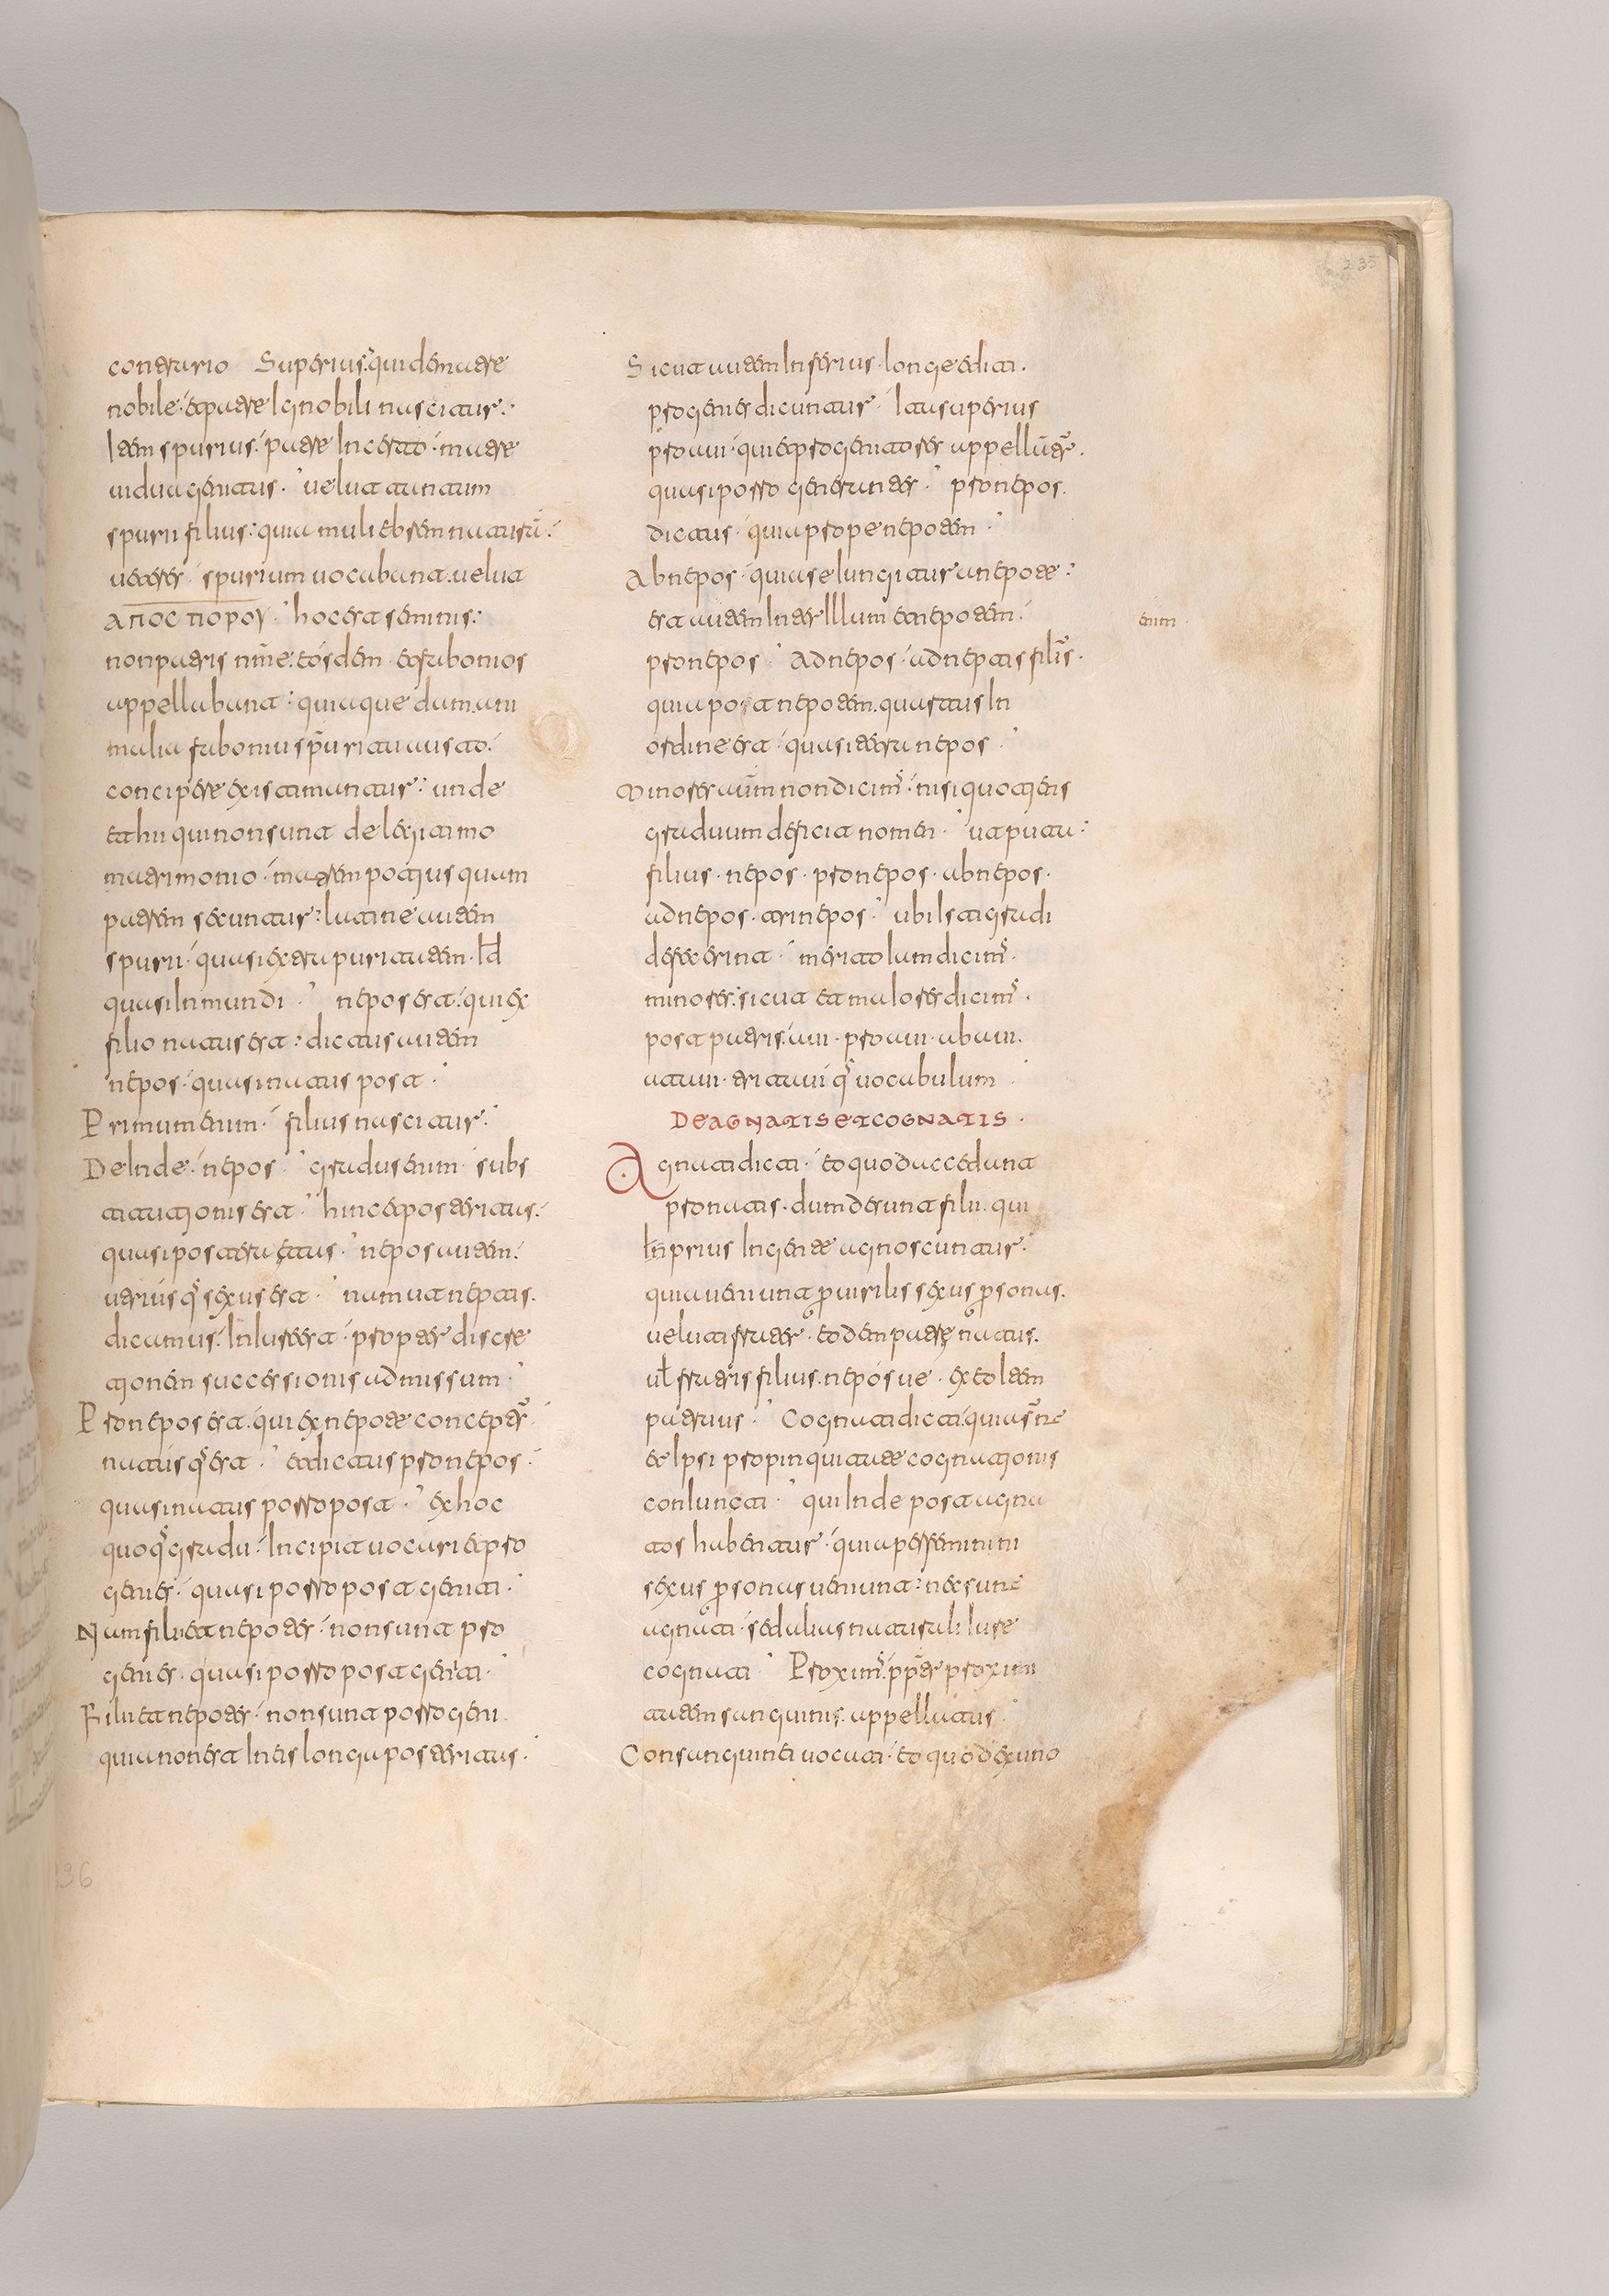 contrario Superius quidem matre
nobile et patre Ignobili nascitur
Item spurius patre Incerto matre
uidua genitus uelut tantum
spurii filius quia muliebrem naturã
ueteres spurium uocabant uelut
ΑΠΟC ΠΟΡΟΥ hoc est seminis
non patris nm̃e eosdem et fabonios
appellabant quiaque dam ani
malia fabonius spũ ritu austo
concipere existimantur unde
et hii qui non sunt de legitimo
matrimonio matrem potius quam
patrem secuntur latine autem
spurii quasi extra puritatem Id
quasi Inmundi nepos est qui ex
filio natus est dictus autem
nepos quasi natus post
Primum enim filius nascitur
DeInde nepos gradus enim subs
titutionis est hinc et posteritas
quasi postera etas nepos autem
utriusq̃ sexus est nam ut neptis
dicamus In Iure est propter discre
tionem successionis admissum
Pronepos est qui ex nepote conceptꝰ
natusq̃ est et dictus pronepos
quasi natus porro post ex hoc
quoq̃ gradu Incipit uocari et pro
genies quasi porro post geniti
Nam filii et nepotes non sunt pro
genies quasi porro post geniti
Filii et nepotes non sunt porro geni
quia non est In eis longa posteritas
Sicut autem Inferius longe editi
progenies dicuntur Ita superius
proaui qui et progenitores appellantur
quasi porro generantes pronepos
dictus quia prope nepotem
Abnepos quia seIungitur a nepote
est autem Inter Illum et nepotem
enim
pronepos Adnepos adneptis filiꝰ
quia post nepotem quartus In
ordine est quasi ater a nepos
Minores aũm non dicimꝰ nisi quotiens
graduum deficit nomen ut puta
filius nepos pronepos abnepos
adnepos trinepos ubi Isti gradi
defecerint merito Iam dicimꝰ
minores sicut et maiores dicimꝰ
post patris aui proaui abaui
ataui tritaui q̃ uocabulum
DE AGNATIS ET COGNATIS
Agnati dicti eo quod accedunt
pro natis dum desunt filii qui
In prius In gente agnoscuntur
quia ueniunt p uirilis sexus psonas
uelut frater eodem patre natus
uł fratris filius neposue ex eo Item
patruus Cognati dicti quia sñt
et Ipsi propinquitate cognationis
conIuncti qui Inde post agna
tos habentur quia per feminini
sexus psonas ueniunt nec sunt
agnati sed alias naturali Iure
cognati Proximꝰ ppter proximi
tatem sanguinis appellatus
Consanguinei uocati eo quod ex uno